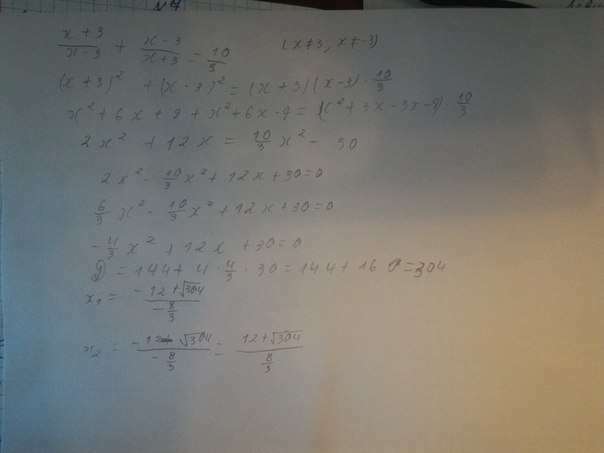 (x+3)/(x-3) + (x-3)/(x+3) = 10/3 (x≠3, x≠-3)
(x+3)² + (x-3)² = (x+3)(x-3) · 10/3
x² + 6x + 9 + x² + 6x - 9 = (x² + 3x - 3x - 9) · 10/3
2x² + 12x = 10/3 x² - 30
2x² - 10/3 x² + 12x + 30 = 0
6/3 x² - 10/3 x² + 12x + 30 = 0
-4/3 x² + 12x + 30 = 0
D = 144 + 4 · 4/3 · 30 = 144 + 160 = 304
x₁ = (-12 + √304)/(-8/3)
x₂ = (-12 - √304)/(-8/3) = (12 + √304)/(8/3)